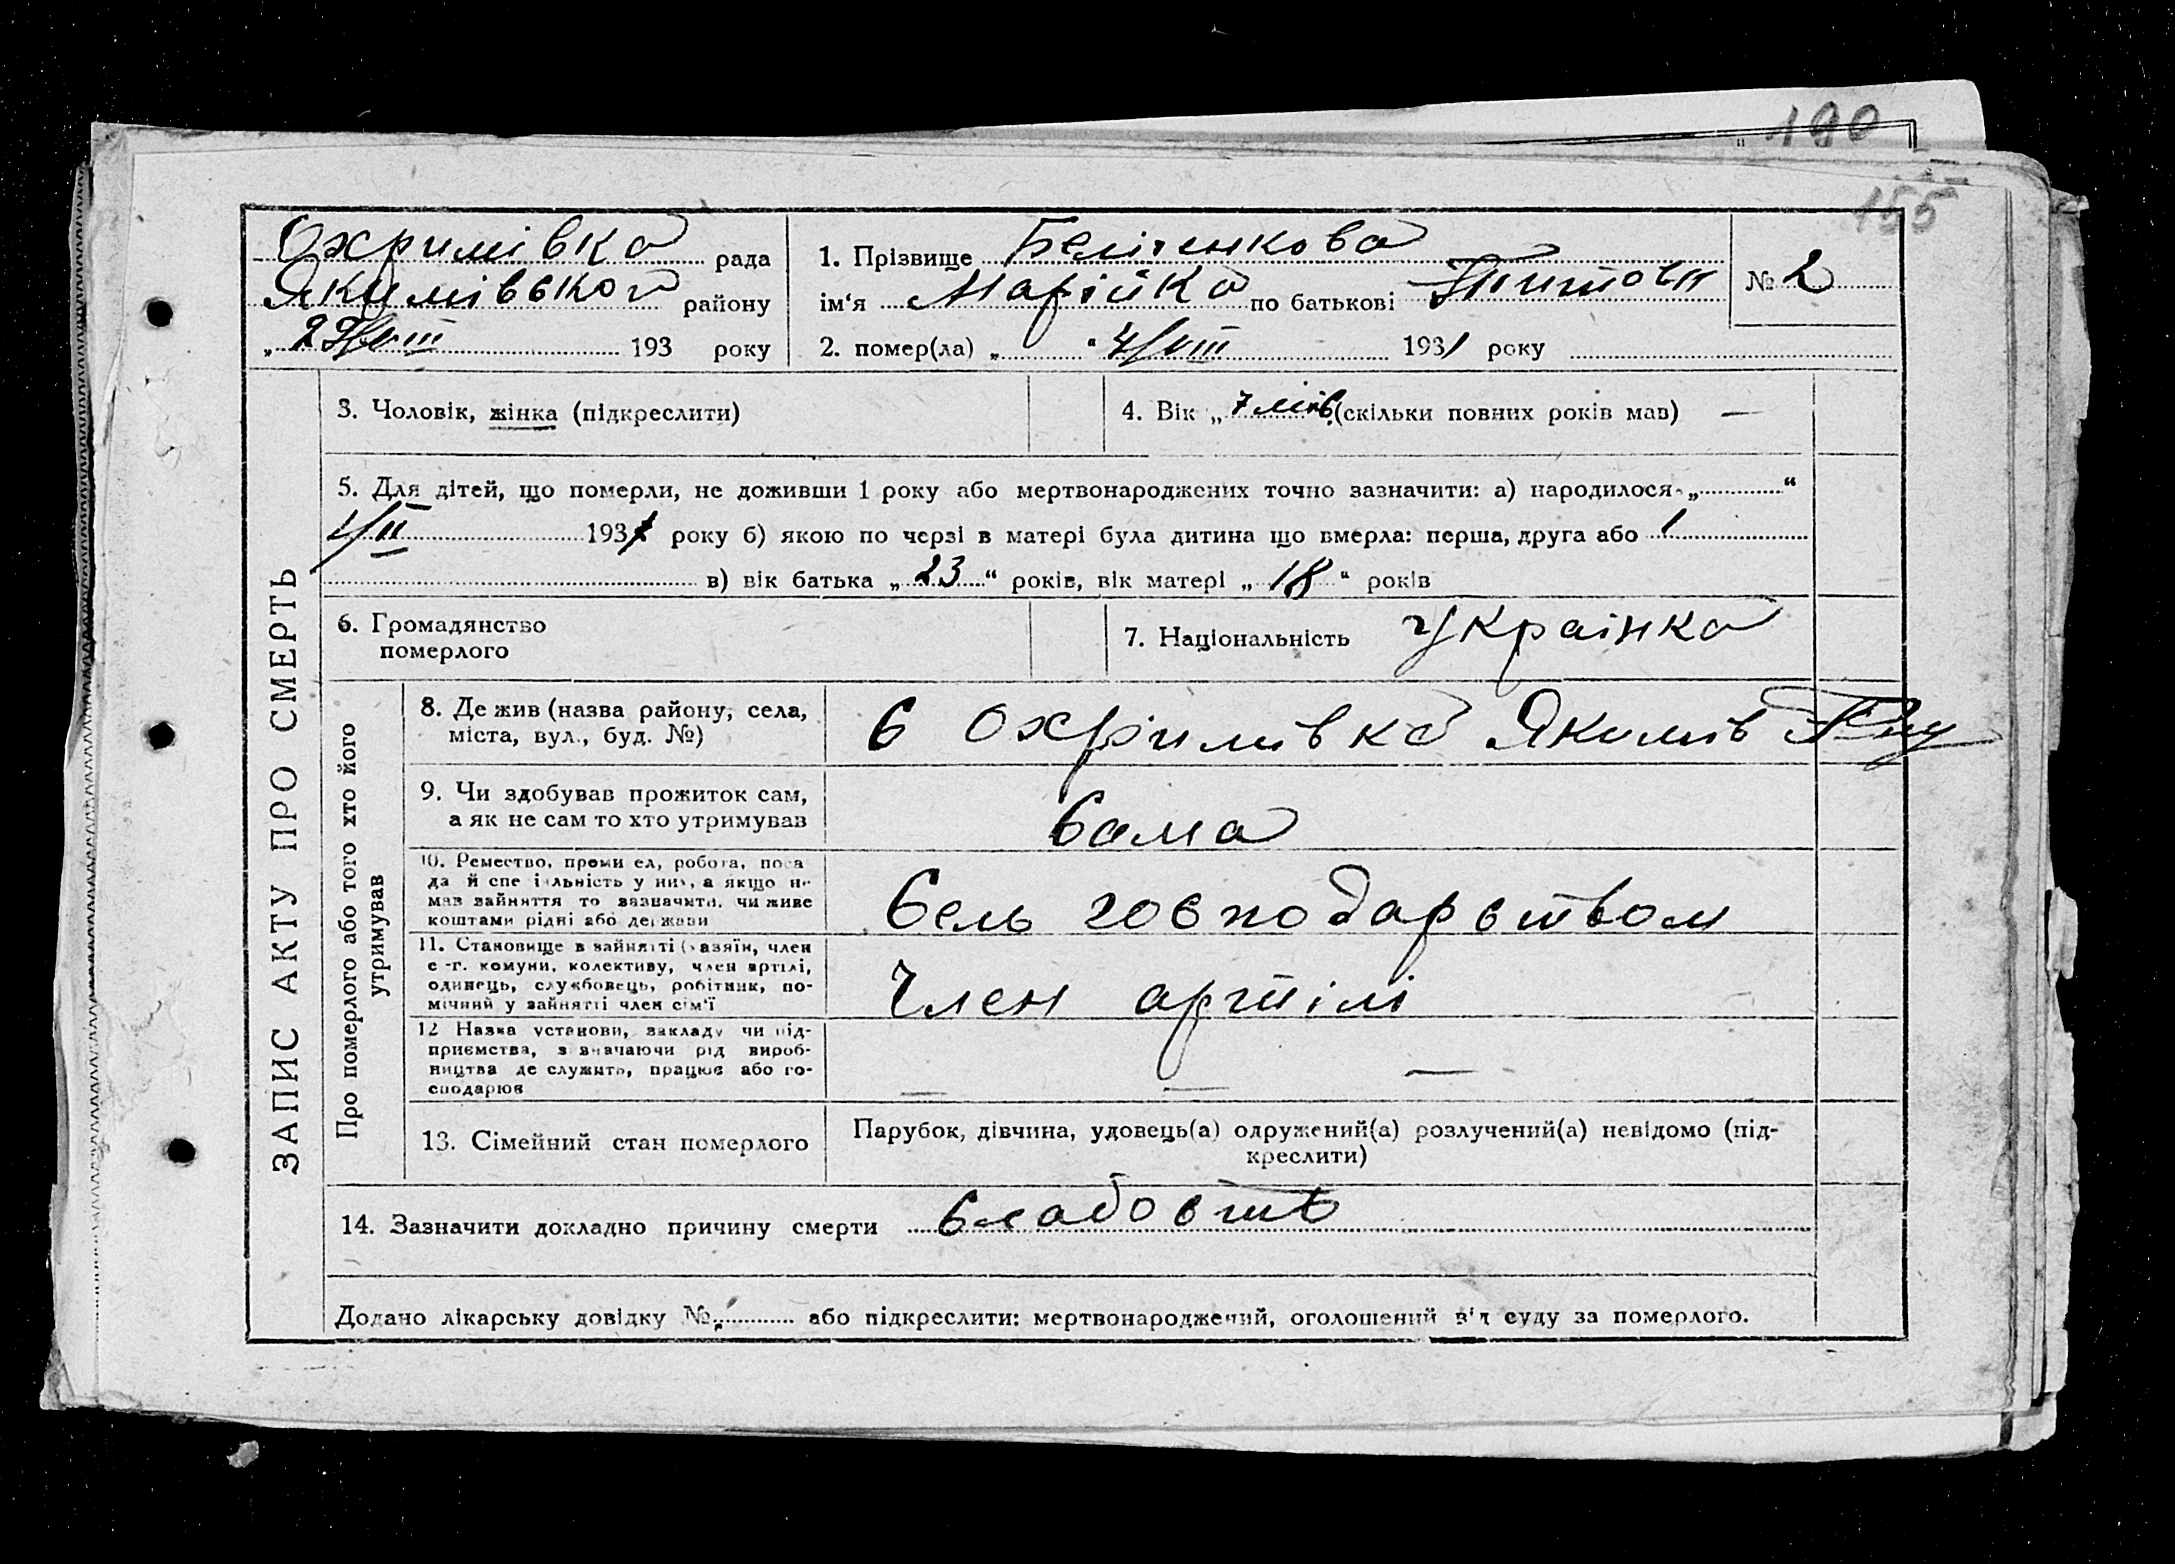 190
155
Охримівка рада
Якимівької району
„ 29/VIII 193 року
1. Прізвище Беліченкова
ім‘я Марійка по батькові
№ 2
2. помер(ла) „ “ 4/VIII 1931 року
3. Чоловік, жінка (підкреслити)
4. Вік „ 7 міс (скільки повних років мав) —
5. Для дітей, що померли, не доживши 1 року або мертвонароджених точно зазначити: а) народилося „ “
1/II 1931 року б) якою по черзі в матері була дитина що вмерла: перша, друга або 1
в) вік батька „ 23 “ років, вік матері „ 18 “ років
6. Громадянство
померлого
7. Національність Українка
ЗАПИС АКТУ ПРО СМЕРТЬ
Про померлого або того хто його
утримував
8. Де жив (назва району, села,
міста, вул., буд. №)
с Охримівка Якимів Р-ну
9. Чи здобував прожиток сам,
а як не сам то хто утримував
Сама
10. Ремество, промисел, робота, поса
да й спеціяльність у них, а якщо не
мав зайняття то зазначити, чи живе
коштами рідні або держави
Сель господарством
11. Становище в зайнятті (хазяїн, член
с.-г. комуни, колективу, член артілі,
одинець, службовець, робітник, по-
мічний у зайнятті член сім‘ї
Член артілі
12 Назва установи, закладу чи під-
приємства, зазначаючи рід вироб-
ництва де служить, працює або го-
сподарює
— — —
13. Сімейний стан померлого
Парубок, дівчина, удовець(а) одружений(а) розлучений(а) невідомо (під-
креслити)
14. Зазначити докладно причину смерти слабость
Додано лікарську довідку № або підкреслити: мертвонароджений, оголошений від суду за померлого.